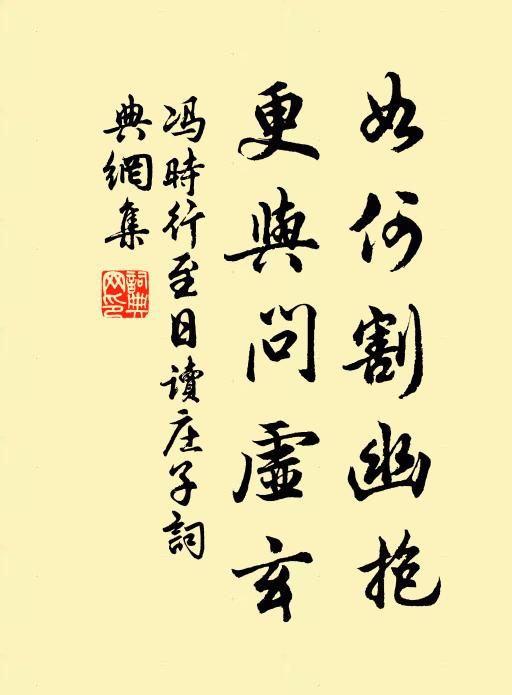 如何割幽抱
更與問虛玄
冯時行至日讀庄子詞
典網集
詞典
网印